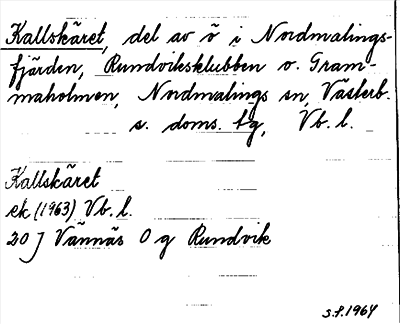 Kallskäret, del av ö i Nordmalings-
fjärden, Rundviksklubben o. Gram-
maholmen, Nordmalings sn, Västerb.
s. doms. tg, Vb. l.
Kallskäret
ek (1963) Vb. l.
20 J Vännäs 0 g Rundvik
S.P. 1964